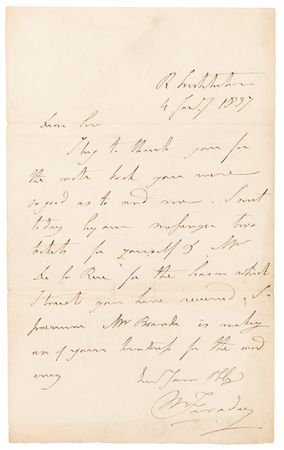 R Institution
4 Jany 1837
Dear Sir
I beg to thank you for
the note book you were
so good as to send me. I sent
today by our messenger two
tickets for yourself & Mr
De la Rue for the which
I trust you have received. I
presume Mr Brande is making
use of your kindness for the
Ever Yours
M Faraday